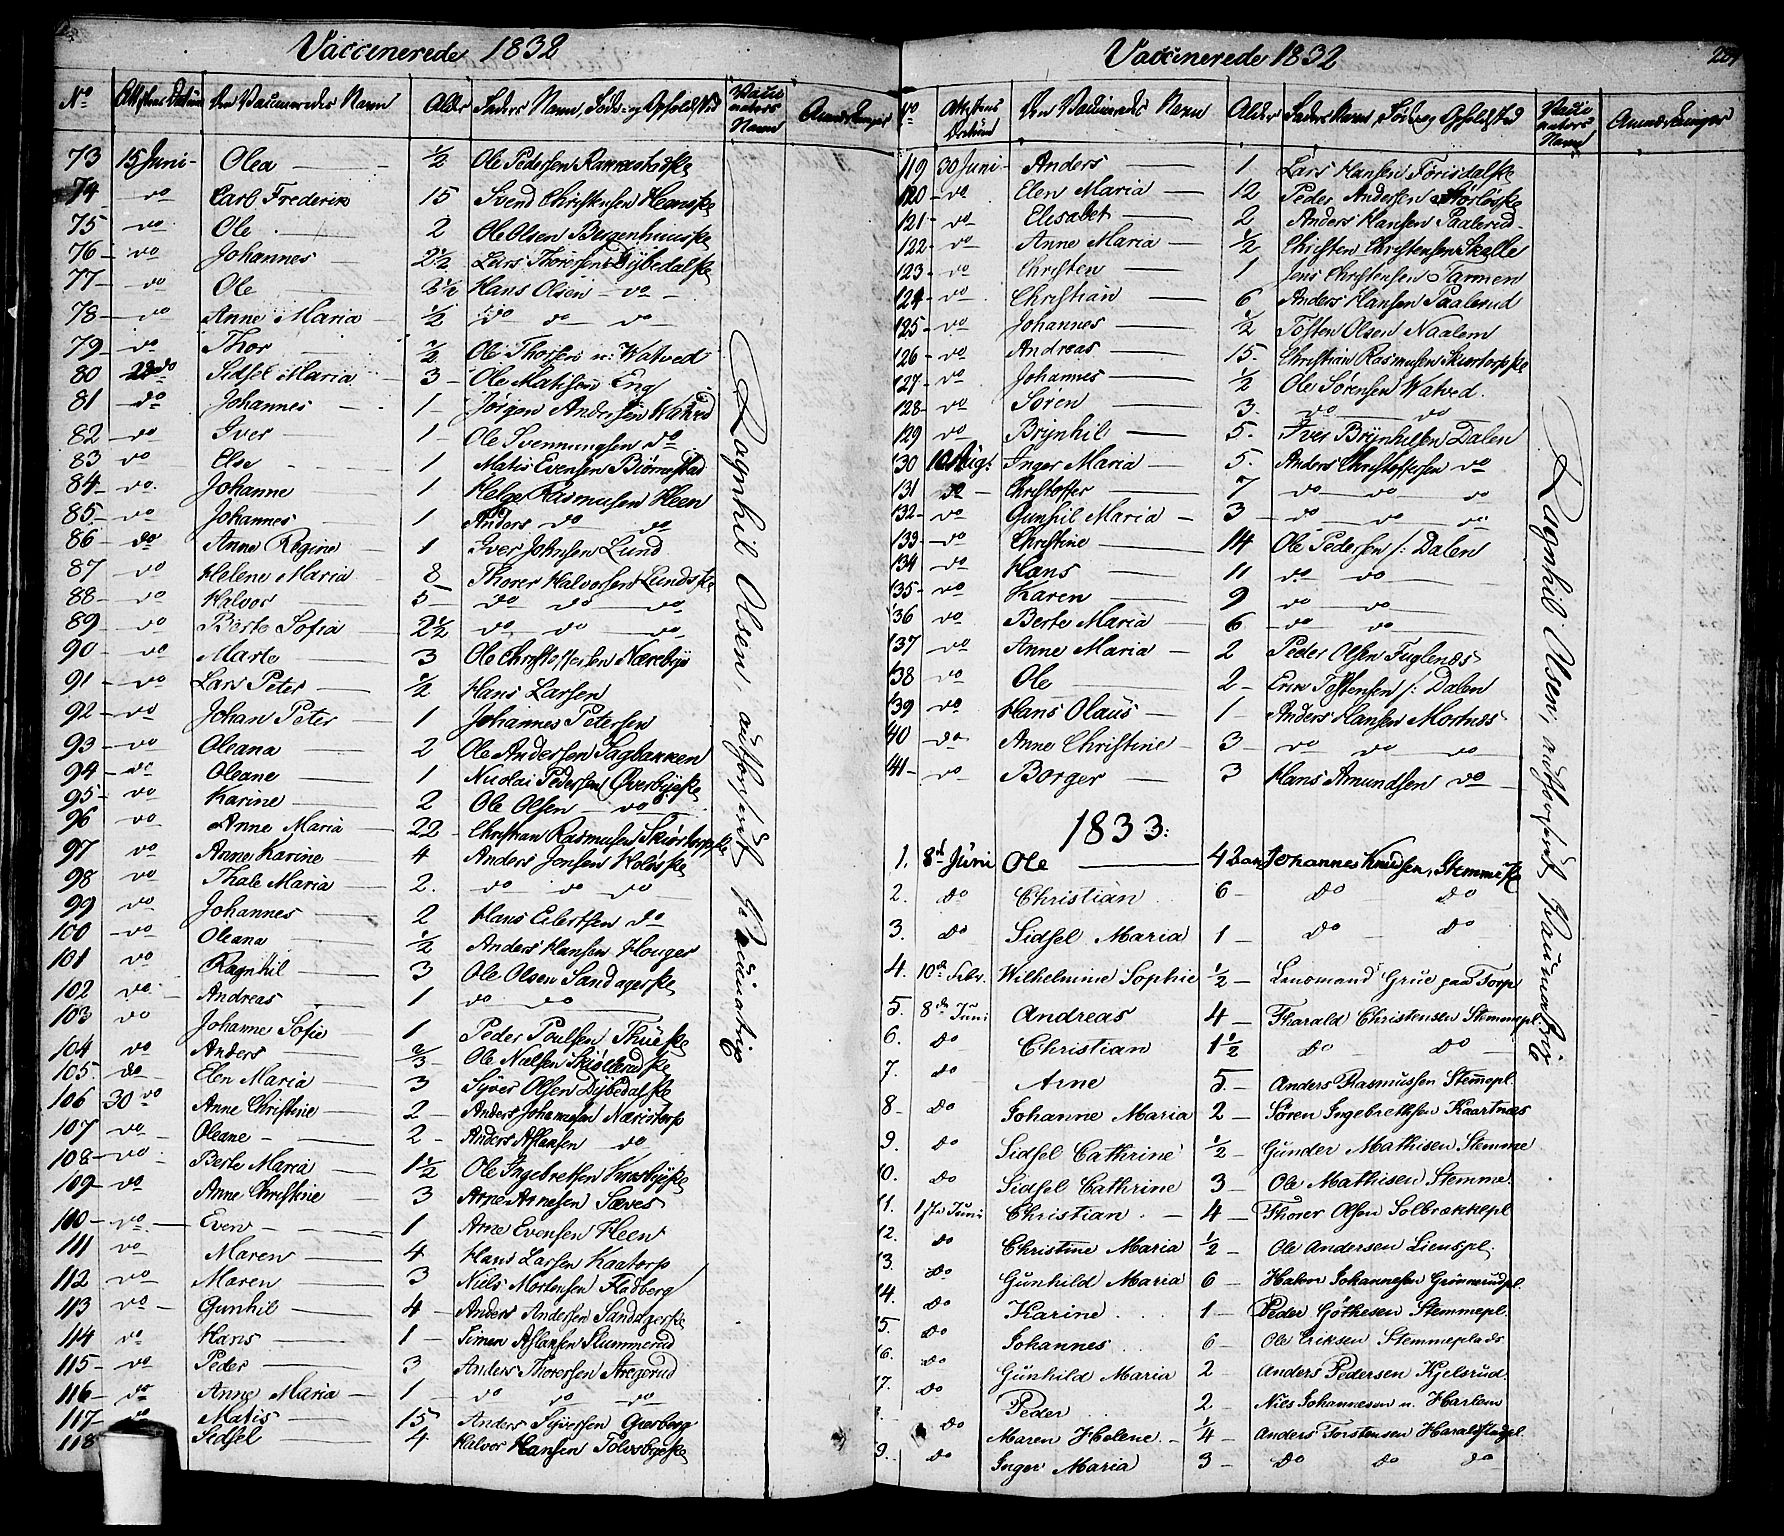 Vaccinerede 1832
No Attestens Datum Den Vaccineredes Navn Alder Faders Navn, Føde og Opholdsted Vaccinators Navn Anmærkninger
73 15 Juni - Olea ½ Ole Pedersen
74 do Carl Frederik 15 Svend Christensen
75 do Ole 2 Ole Olsen
76 do Johannes 2½ Lars Thoresen Dybedalske
77 do Ole Hans Olsen do
78 do Anne Maria ½ do do do
79 do Thor ½ Ole Thorsen n: Watved
80 do Sidsel Maria 3 Ole Matisen Eng
81 do Johannes 1 Jørgen Andersen Watved
82 do Iver 1 Ole Svennungsen do
83 do Else 1 Matis Evensen Biørnestad
84 do Johanne 1 Helge Rasmusen Heen
85 do Johannes 1 Anders do do
86 do Anne Regine 1 Iver Johnsen Lund
87 do Helene Maria 8 Thorer Halvorsen Lundske
88 do Halvor 5 do do do
89 do Berte Sofia 2½ do do do
90 do Marte 3 Ole Christoffersen Nærebye
91 do Lars Peter ½ Hans Larsen
92 do Johan Peter 1 Johannes Petersen
93 do Oleana 2 Ole Andersen Sagbakken
94 do Oleane 1 Nicolai Pedersen Øverbyeske
95 do Karine 2 Ole Olsen do
96 do Anne Maria 22 Christian Rasmusen
97 do Anne Karine 4 Anders Jonsen
98 do Thale Maria 2 do do do
99 do Johannes 2 Hans Eilertsen do
100 do Oleana ½ Anders Hansen Houger
101 do Ragnhil 3 Ole Olsen Sandagerske
102 do Andreas 1 do do
103 do Johanne Sofie 1 Peder Poulsen
104 do Anders Ole Nielsen
105 do Elen Maria 3 Syver Olsen Dybedalske
106 30 do Anne Christine 2 Anders Johannesen
107 do Oleane 2 Anders Aslaksen do
108 do Berte Maria 1½ Ole Ingebretsen
109 do Anne Christine 3 Arne Arnesen
110 do Even 1 Arne Evensen Heen
111 do Maren 4 Hans Larsen Kaatorp
112 do Maren 3 Niels Mortensen Hadberg
113 do Gunhil 4 Anders Andersen Sandagerske
114 do Hans 1 Simen Aslaksen
115 do Peder 3 Anders Thorersen
116 do Anne Maria 1 do do do
117 do Matis 15 Anders Syversen
118 Sidsel 4 Halvor Hansen
Ragnhil Olsen, authoriseret Vaccinatrice
Vaccinerede 1832
No Attestens Datum Den Vaccineredes Navn Alder Faders Navn, Føde og Opholdsted Vaccinators Navn Anmærkninger
119 30 Juni Anders 1 Lars Hansen
120 do Elen Maria 12 Peder Andersen
121 do Elisabet 2 Anders Hansen Paalerud
122 do Anne Maria ½ Christen Christensen Skalle
123 do Christen 1 Jens Christensen
124 do Christian 6 Anders Hansen Paalerud
125 do Johannes ½ Tosten Olsen Naalem
126 do Andreas 15 Christian Rasmusen
127 do Johannes ½ Ole Sørensen Watved
128 do Søren 3 do do
129 do Brynhil 5 Iver Brynhilsen Dalen
130 10 Aug: Inger Maria 5 Anders Christoffersen do
131 do Christoffer 7 do do do
132 do Gunhil Maria 3 do do do
133 do Christine 14 Ole Pedersen /: Dalen
134 do Hans 11 do do
135 do Karen 9 do do
136 do Berte Maria 6 do do
137 do Anne Maria 2 Peder Olsen Fuglenæs
138 do Ole 2 Erik Tostensen /: Dalen
139 do Hans Olaüs 1 Anders Hansen Mortnæs
40 do Anne Christine 3 do do do
41 do Borger 3 Hans Amundsen do
1833:
1. 8d Juni Ole 4 Johannes Knudsen, Stemmeske
2. do Christian 6 do do
3. do Sidsel Maria 1 do do
4. 10d Febr. Wilhelmine Sophie ½ Lensmand Grue paa Torp
5. 8de Juni Andreas 4 Tharald Christensen Stemmepl.
6. do Christian 1½ do do
7. do Arne 5 Anders Rasmussen Stemepl.
8. do Johanne Maria 2 Søren Ingebretsen Kaartnæs
9. do Sidsel Cathrine ½ Gunder Mathisen Stemme
10. do Sidsel Cathrine 3 Ole Mathisen Stemme
11. Juni Christian 4 Thorer Olsen Solbrækkepl
12. do Christine Maria ½ Ole Andersen Lienspl.
13. do Gunhild Maria 6 Halvor Johannesen Grinnerudpl.
14. do Karine 1 Peder Göthesen Stemmepl.
15. do Johannes 6 Ole Eriksen Stemmeplads
16. do Gunhild Maria 2 Anders Pedersen Kjelsrud
17. do Peder 2 Nils Johannesen n. Harlem
do Maren Helene ¼ Anders Torstensen
9. do Inger Maria 3 do do do
Ragnhil Olsen, authoriseret Vaccinatrice